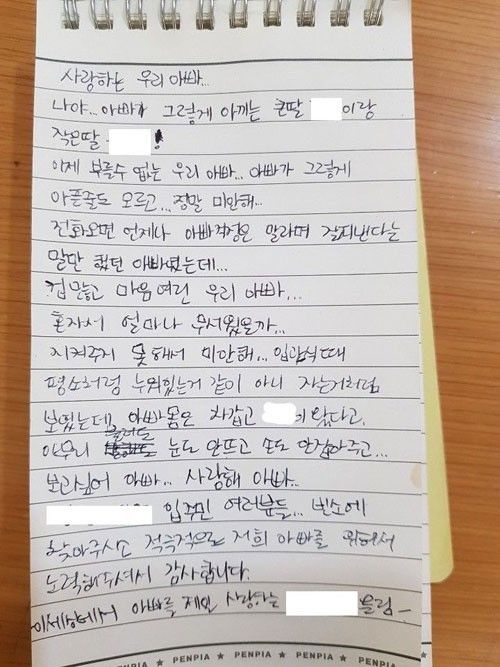 사랑하는 우리 아빠...
나야... 아빠가 그렇게 아끼는 큰딸 이랑
작은딸 !
이제 부를수 없는 우리 아빠... 아빠가 그렇게
아픈줄도 모르고... 정말 미안해...
전화오면 언제나 아빠걱정은 말라며 잘지낸다는
말만 했던 아빠였는데...
겁많고 마음여린 우리 아빠...
혼자서 얼마나 무서웠을까...
지켜주지 못해서 미안해... 입관식때
평소처럼 누워있는거 같이 아니 자는거처럼
보였는데 아빠몸은 차갑고 었다고.
아무리 불러도 눈도 안뜨고 손도 안잡아주고...
보고싶어 아빠... 사랑해 아빠..
입주민 여러분들... 빈소에
찾아주시고 적극적으로 저희 아빠를 위해서
노력해주셔서 감사합니다.
이세상에서 아빠를 제일 사랑하는 올림-
PENPIA ★ PENPIA ★ PENPIA ★ PENPIA ★ PENPIA